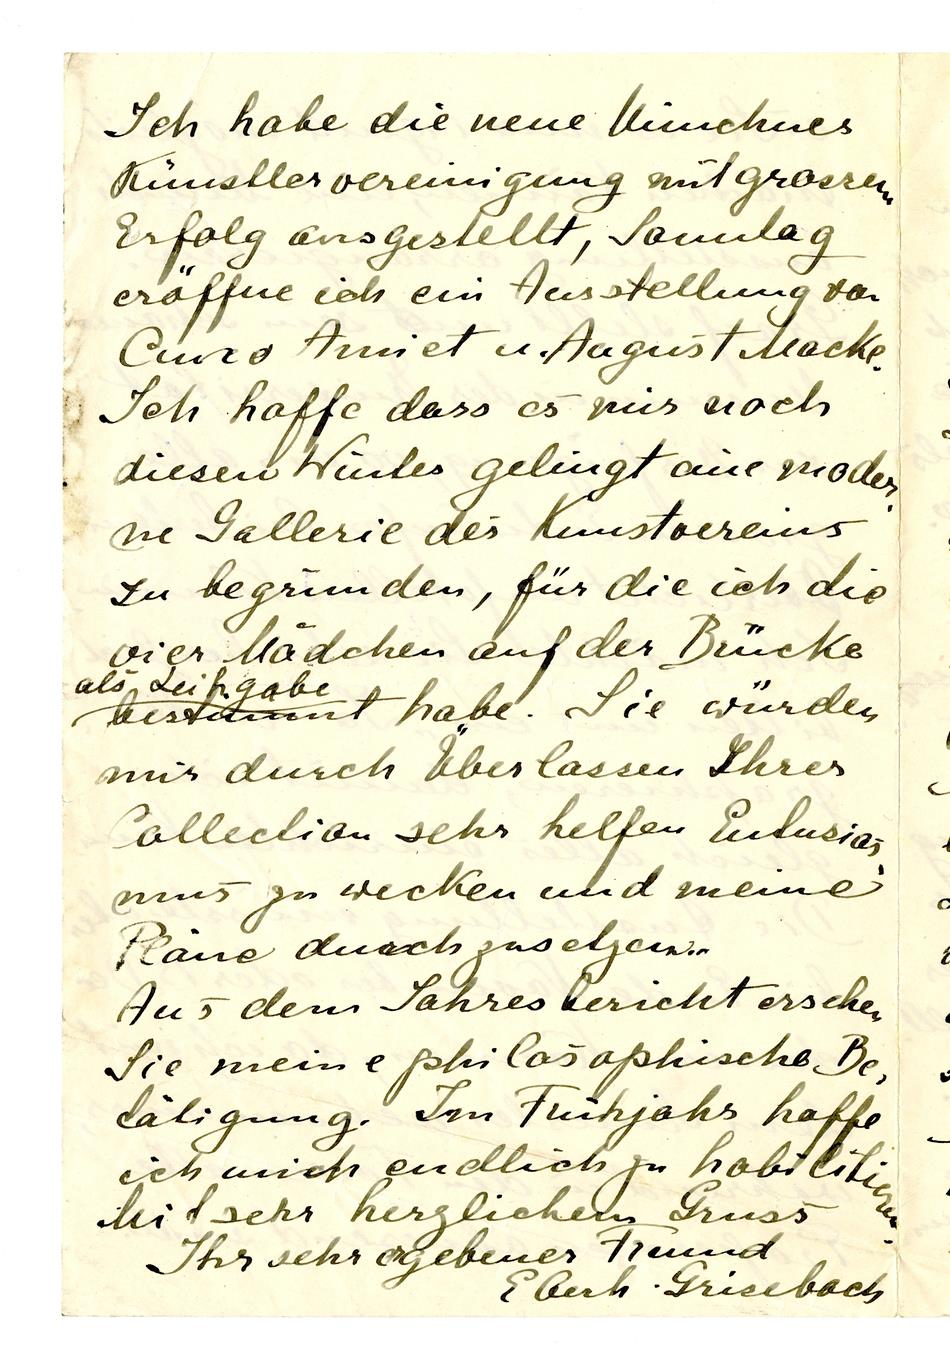 Ich habe die neue Münchner
Künstlervereinigung mit grossem
Erfolg ausgestellt, Sonntag
eröffne ich ein Ausstellung von
Cuno Amiet u. August Macke.
Ich hoffe dass es mir noch
diesen Winter gelingt eine moder,
ne Gallerie des Kunstvereins
zu begründen, für die ich die
vier Mädchen auf der Brücke
als Leihgabe
bestimmt habe. Sie würden
mir durch Überlassen Ihrer
Collection sehr helfen Entusias,
mus zu wecken und meine
Pläne durchzusetzen.
Aus dem Jahresbericht ersehen
Sie meine philosophische Be,
tätigung. Im Frühjahr hoffe
ich mich endlich zu habilitieren.
Mit sehr herzlichem Gruss
Ihr sehr ergebener Freund
Eberh. Grisebach